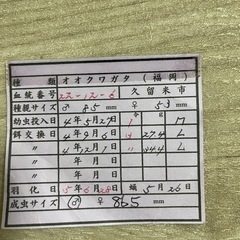 種 類 オオクワガタ (福岡)
血統番号 22-12-6 久留米市
種親サイズ ♂ 85 mm ♀ 53 mm
幼虫投入日 4年5月27日 1令 g
餌交換日 4年9月6日 27.4
〃 4年12月1日
〃 年 月 日
〃 年 月 日
羽化日 5年6月28日 蛹 5月26日
成虫サイズ (♂)・♀ 865 mm